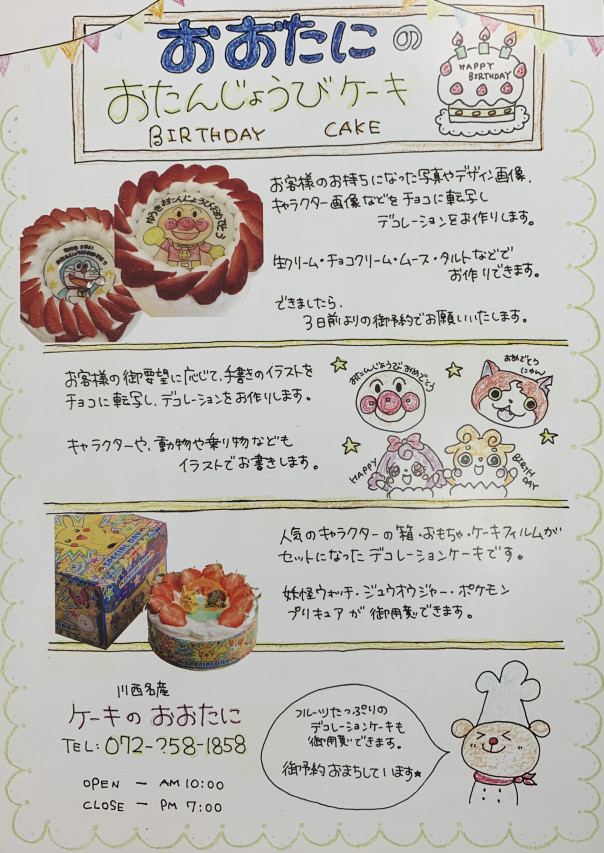 おおたにの
おたんじょうびケーキ
BIRTHDAY CAKE
HAPPY
BIRTHDAY
お客様のお持ちになった写真やデザイン画像、
キャラクター画像などをチョコに転写し
デコレーションをお作りします。
生クリーム・チョコクリーム・ムース・タルトなどで
お作りできます。
できましたら、
3日前よりの御予約でお願いいたします。
おたんじょうびおめでとう
お客様の御要望に応じて、手書きのイラストを
チョコに転写し、デコレーションをお作りします。
キャラクターや、動物や乗り物なども
イラストでお書きします。
おたんじょうびおめでとう
おめでとう
にゃん
HAPPY
BIRTH
DAY
人気のキャラクターの箱・おもちゃ・ケーキフィルムが
セットになったデコレーションケーキです。
妖怪ウォッチ・ジュウオウジャー・ポケモン
プリキュアが御用意できます。
川西名産
ケーキのおおたに
TEL: 072-758-1858
OPEN — AM 10:00
CLOSE — PM 7:00
フルーツたっぷりの
デコレーションケーキも
御用意できます。
御予約おまちしています★